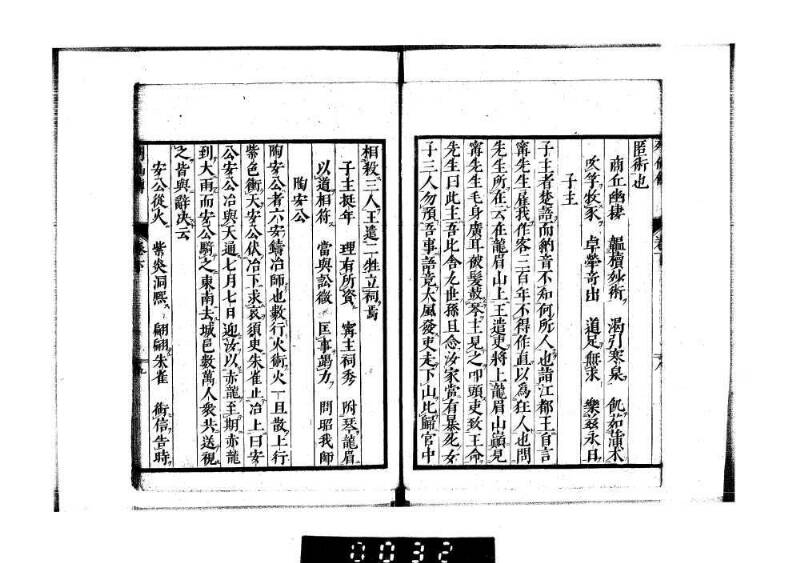 匿術也
商丘幽棲 韞櫝妙術 渴引寒泉 飢茹蒲朮
吹竽牧豕 卓犖奇出 道足無求 樂茲永日
子主
子主者楚語而細音不知何所人也詣江都王自言
甯先生雇我作客三百年不得作直以為狂人也問
先生所在云在龍眉山上王遣吏將上龍眉山巔見
甯先生毛身廣耳被髮鼓琴主見之叩頭吏致王命
先生曰此主吾比舍九世孫且念汝家當有暴死女
子三人勿預吾事語竟大風發吏走下山比歸宮中
相殺三人王遣二牲立祠焉
子主挺年 理有所資 甯主祠秀 附琴龍眉
以道相符 當與訟微 匡事竭力 問昭我師
陶安公
陶安公者六安鑄冶師也數行火術火一旦散上行
紫色衝天安公伏冶下求哀須臾朱雀止冶上曰安
公安公冶與天通七月七日迎汝以赤龍至期赤龍
到大雨而安公騎之東南去城邑數萬人眾共送視
之皆與辭決云
安公從火 紫炎洞熙 翩翩朱雀 銜信告時
0032